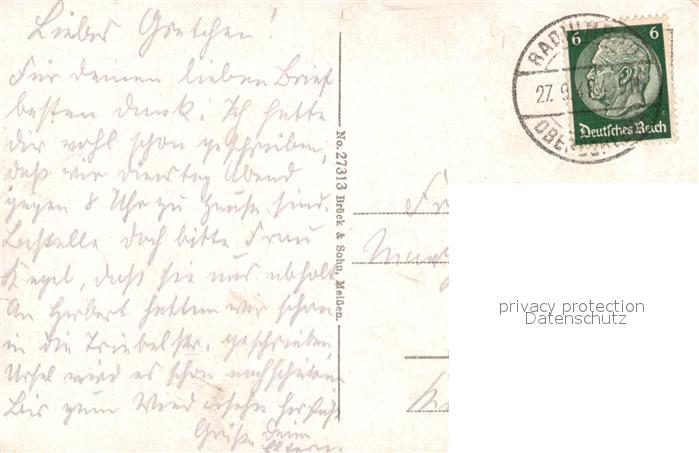 Liebes Gretchen!
Für deinen lieben Brief
besten Dank. Ich hatte
dir wohl schon geschrieben,
daß wir Dienstag Abend
gegen 8 Uhr zu Hause sind.
Bestelle doch bitte Frau
Kegel, daß sie uns abholt
An Herbert hatten wir schon
in die Triebelstr. geschrieben
Ursel wird es schon nachschicken
Bis zum Wiedersehn herzlichst
Grüße Deine
Eltern.
No. 27313 Brück & Sohn, Meißen.
27.9.
6 6
Deutsches Reich
privacy protection
Datenschutz